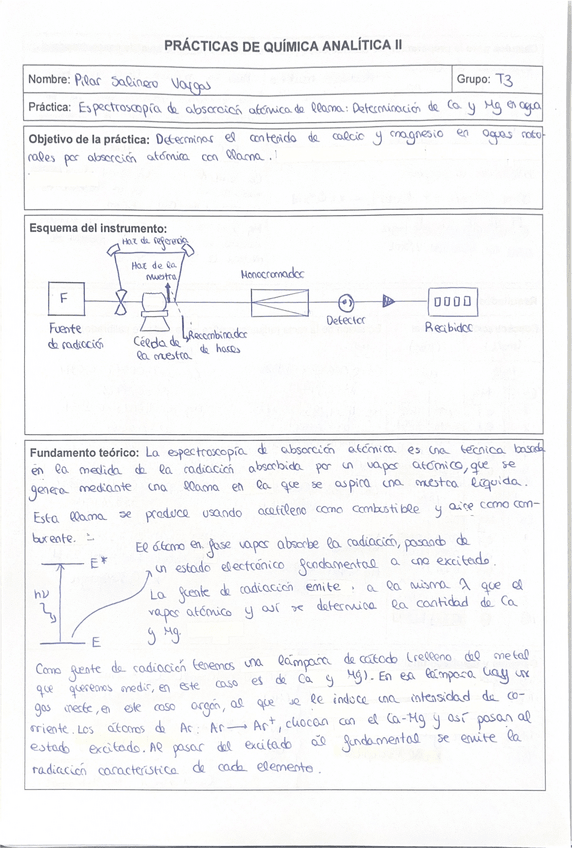 PRÁCTICAS DE QUÍMICA ANALÍTICA II
Nombre: Pilar Salinero Vargas
Grupo: T3
Práctica: Espectroscopía de absorción atómica de llama: Determinación de Ca y Mg en agua
Objetivo de la práctica: Determinar el contenido de calcio y magnesio en aguas natu-
rales por absorción atómica con llama.
Esquema del instrumento:
Haz de referencia
Haz de la
muestra
Monocromador
F
Fuente
de radiación
Célula de
la muestra
Recombinador
de haces
Detector
Recibidor
Fundamento teórico: La espectroscopía de absorción atómica es una técnica basada
en la medida de la radiación absorbida por un vapor atómico, que se
genera mediante una llama en la que se aspira una muestra líquida.
Esta llama se produce usando acetileno como combustible y aire como com-
burente.
El átomo en fase vapor absorbe la radiación, pasando de
un estado electrónico fundamental a uno excitado.
E*
hν
E
La fuente de radiación emite a la misma λ que el
vapor atómico y así se determina la cantidad de Ca
y Mg.
Como fuente de radiación tenemos una lámpara de cátodo (relleno del metal
que queremos medir, en este caso es de Ca y Mg). En esa lámpara hay un
gas inerte, en este caso argón, al que se le induce una intensidad de co-
rriente. Los átomos de Ar: Ar → Ar⁺, chocan con el Ca-Mg y así pasan al
estado excitado. Al pasar del excitado al fundamental se emite la
radiación característica de cada elemento.